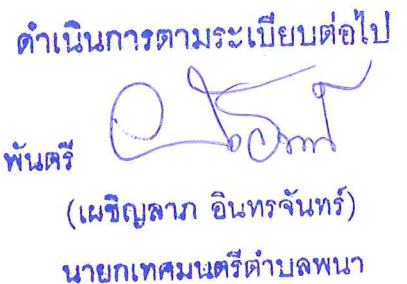 ดำเนินการตามระเบียบต่อไป
พันตรี
(เผชิญลาภ อินทรจันทร์)
นายกเทศมนตรีตำบลพนา